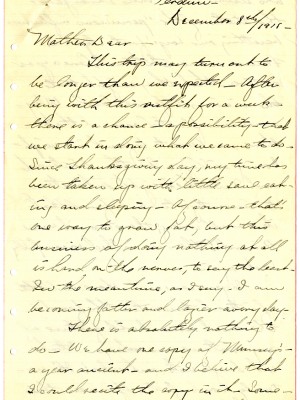 December 8th/1915-
Mother Dear -
This trip may turn out to
be longer than we expected - After
being with this outfit for a week -
there is a chance - a possibility - that
we start in doing what we came to do -
Since Thanksgiving day, my time has
been taken up with little save eat-
ing and sleeping - Of course - that's
one way to grow fat, but this
business of doing nothing at all
is hard on the nerves, to say the least -
In the meantime, as I say - I am
becoming fatter and lazier every day -
There is absolutely nothing to
do - We have one copy of Munsey's -
a year ancient - and I believe that
I could recite the copy in it. Some-